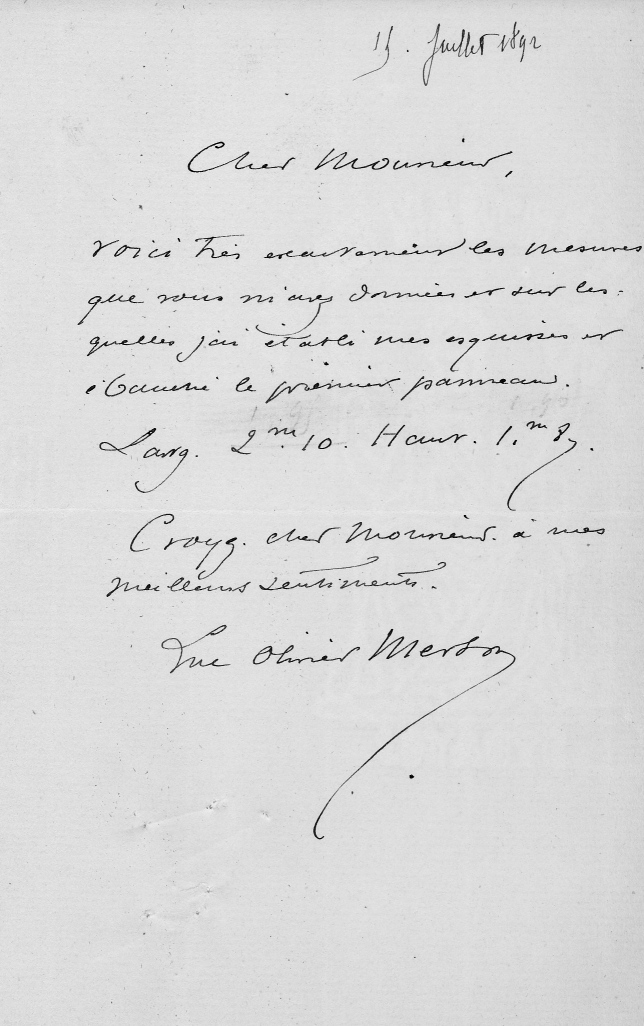 15. Juillet 1892
Cher Monsieur,
Voici très exactement les mesures
que vous m'avez données et sur les-
quelles j'ai établi mes esquisses et
ébauché le premier panneau.
Larg. 2m. 10. Haut. 1.m
Croyez. cher Monsieur. à mes
meilleurs sentiments.
Luc Olivier Merson